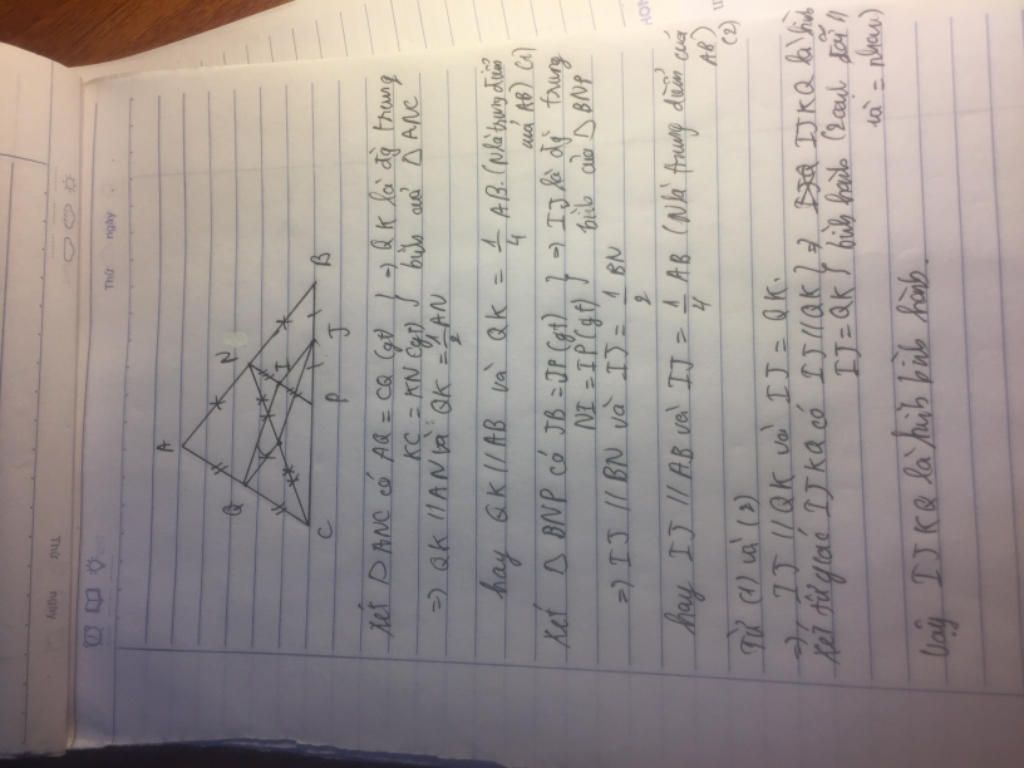 Thứ
ngày
Thứ
Ngày
A
N
B
Q
I
K
C
P
J
Xét △ ANC có AQ = CQ (gt) } => QK là đg trung
KC = KN (gt) } bình của △ ANC
=> QK // AN và QK = 1/2 AN
hay QK // AB và QK = 1/4 AB. (N là trung điểm
của AB) (1)
Xét △ BNP có JB = JP (gt) } => IJ là đg trung
NI = IP (gt) } bình của △ BNP
=> IJ // BN và IJ = 1/2 BN
hay IJ // AB và IJ = 1/4 AB (N là trung điểm của
AB)
(2)
Từ (1) và (2)
=> IJ // QK và IJ = QK.
Xét tứ giác IJKQ có IJ // QK } => IJKQ là hình
IJ = QK } bình hành (2 cạnh đối //
và = nhau)
Vậy IJKQ là hình bình hành.